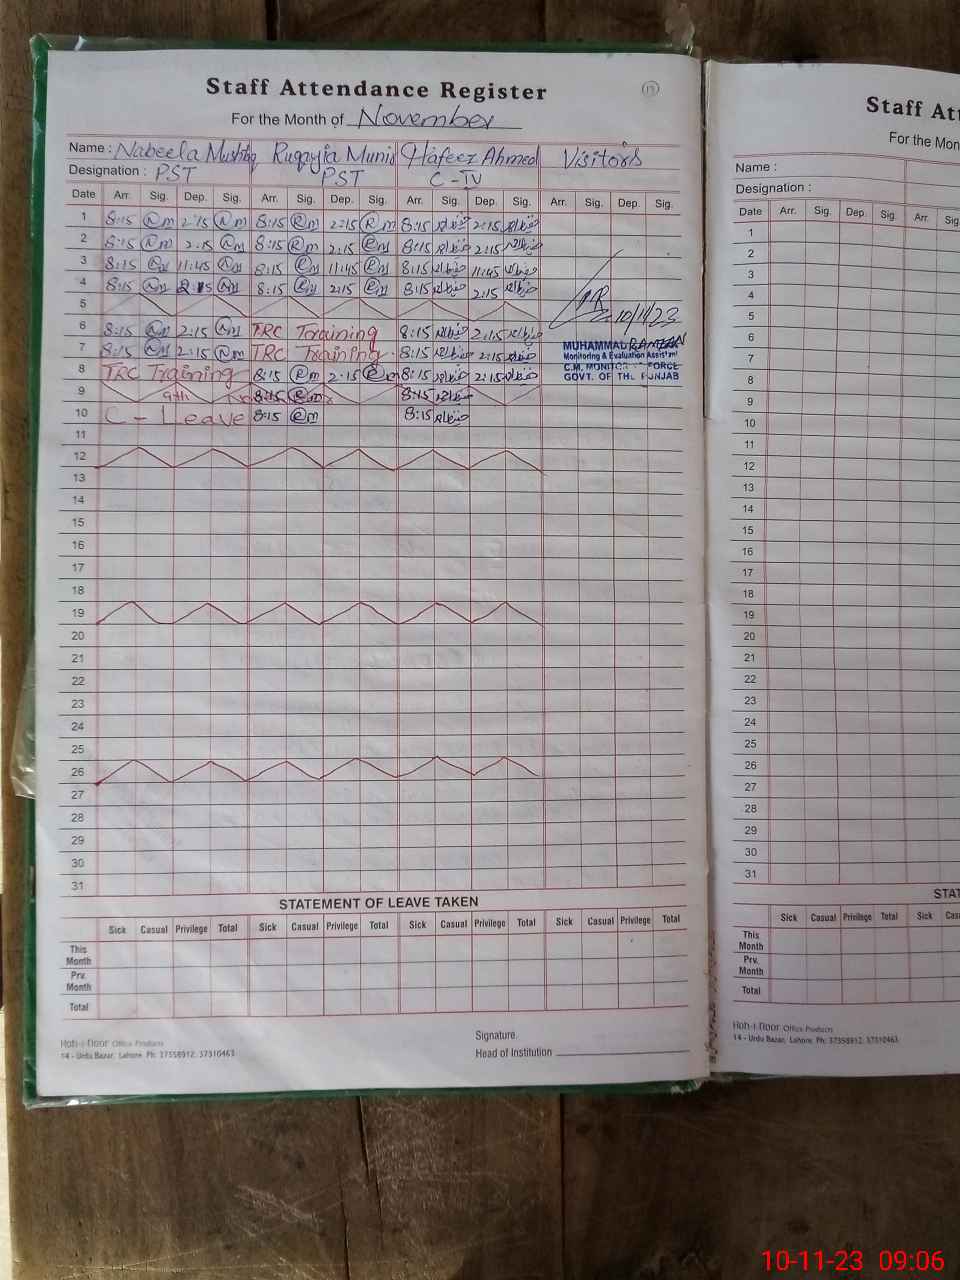 Staff Attendance Register
For the Month of November
Name : Nabeela Mushtaq Ruqayyia Munir Hafeez Ahmed Visitors
Designation : PST PST C-IV
Date Arr. Sig. Dep. Sig. Arr. Sig. Dep. Sig. Arr. Sig. Dep. Sig. Arr. Sig. Dep. Sig.
1 8:15 Nm 2:15 Nm 8:15 Rm 2:15 Rm 8:15 2:15
2 8:15 Nm 2:15 Nm 8:15 Rm 2:15 Rm 8:15 2:15
3 8:15 Nm 11:45 Nm 8:15 Rm 11:45 Rm 8:15 11:45
4 8:15 Nm 2:15 Nm 8:15 Rm 2:15 Rm 8:15 2:15
5 10/11/23
6 8:15 Nm 2:15 Nm TRC Training 8:15 2:15
7 8:15 Nm 2:15 Nm TRC Training 8:15 2:15
MUHAMMAD RAMZAN
Monitoring & Evaluation Assistant
C.M. MONITORING FORCE
GOVT. OF THE PUNJAB
8 TRC Training 8:15 Rm 2:15 Rm 8:15 2:15
9 9th 8:15 Rm 8:15
10 C - Leave 8:15 Rm 8:15
11
12
13
14
15
16
17
18
19
20
21
22
23
24
25
26
27
28
29
30
31
STATEMENT OF LEAVE TAKEN
Sick Casual Privilege Total Sick Casual Privilege Total Sick Casual Privilege Total Sick Casual Privilege Total
This Month
Prv. Month
Total
Signature.
Head of Institution
Hoh-i-Noor Office Products
14 - Urdu Bazar, Lahore. Ph: 37358912, 37310463
Staff Att
For the Mon
Name :
Designation :
Date Arr. Sig. Dep. Sig. Arr. Sig.
1
2
3
4
5
6
7
8
9
10
11
12
13
14
15
16
17
18
19
20
21
22
23
24
25
26
27
28
29
30
31
STAT
Sick Casual Privilege Total Sick Cas
This Month
Prv. Month
Total
Hoh-i-Noor Office Products
14 - Urdu Bazar, Lahore. Ph: 37358912, 37310463
10-11-23 09:06